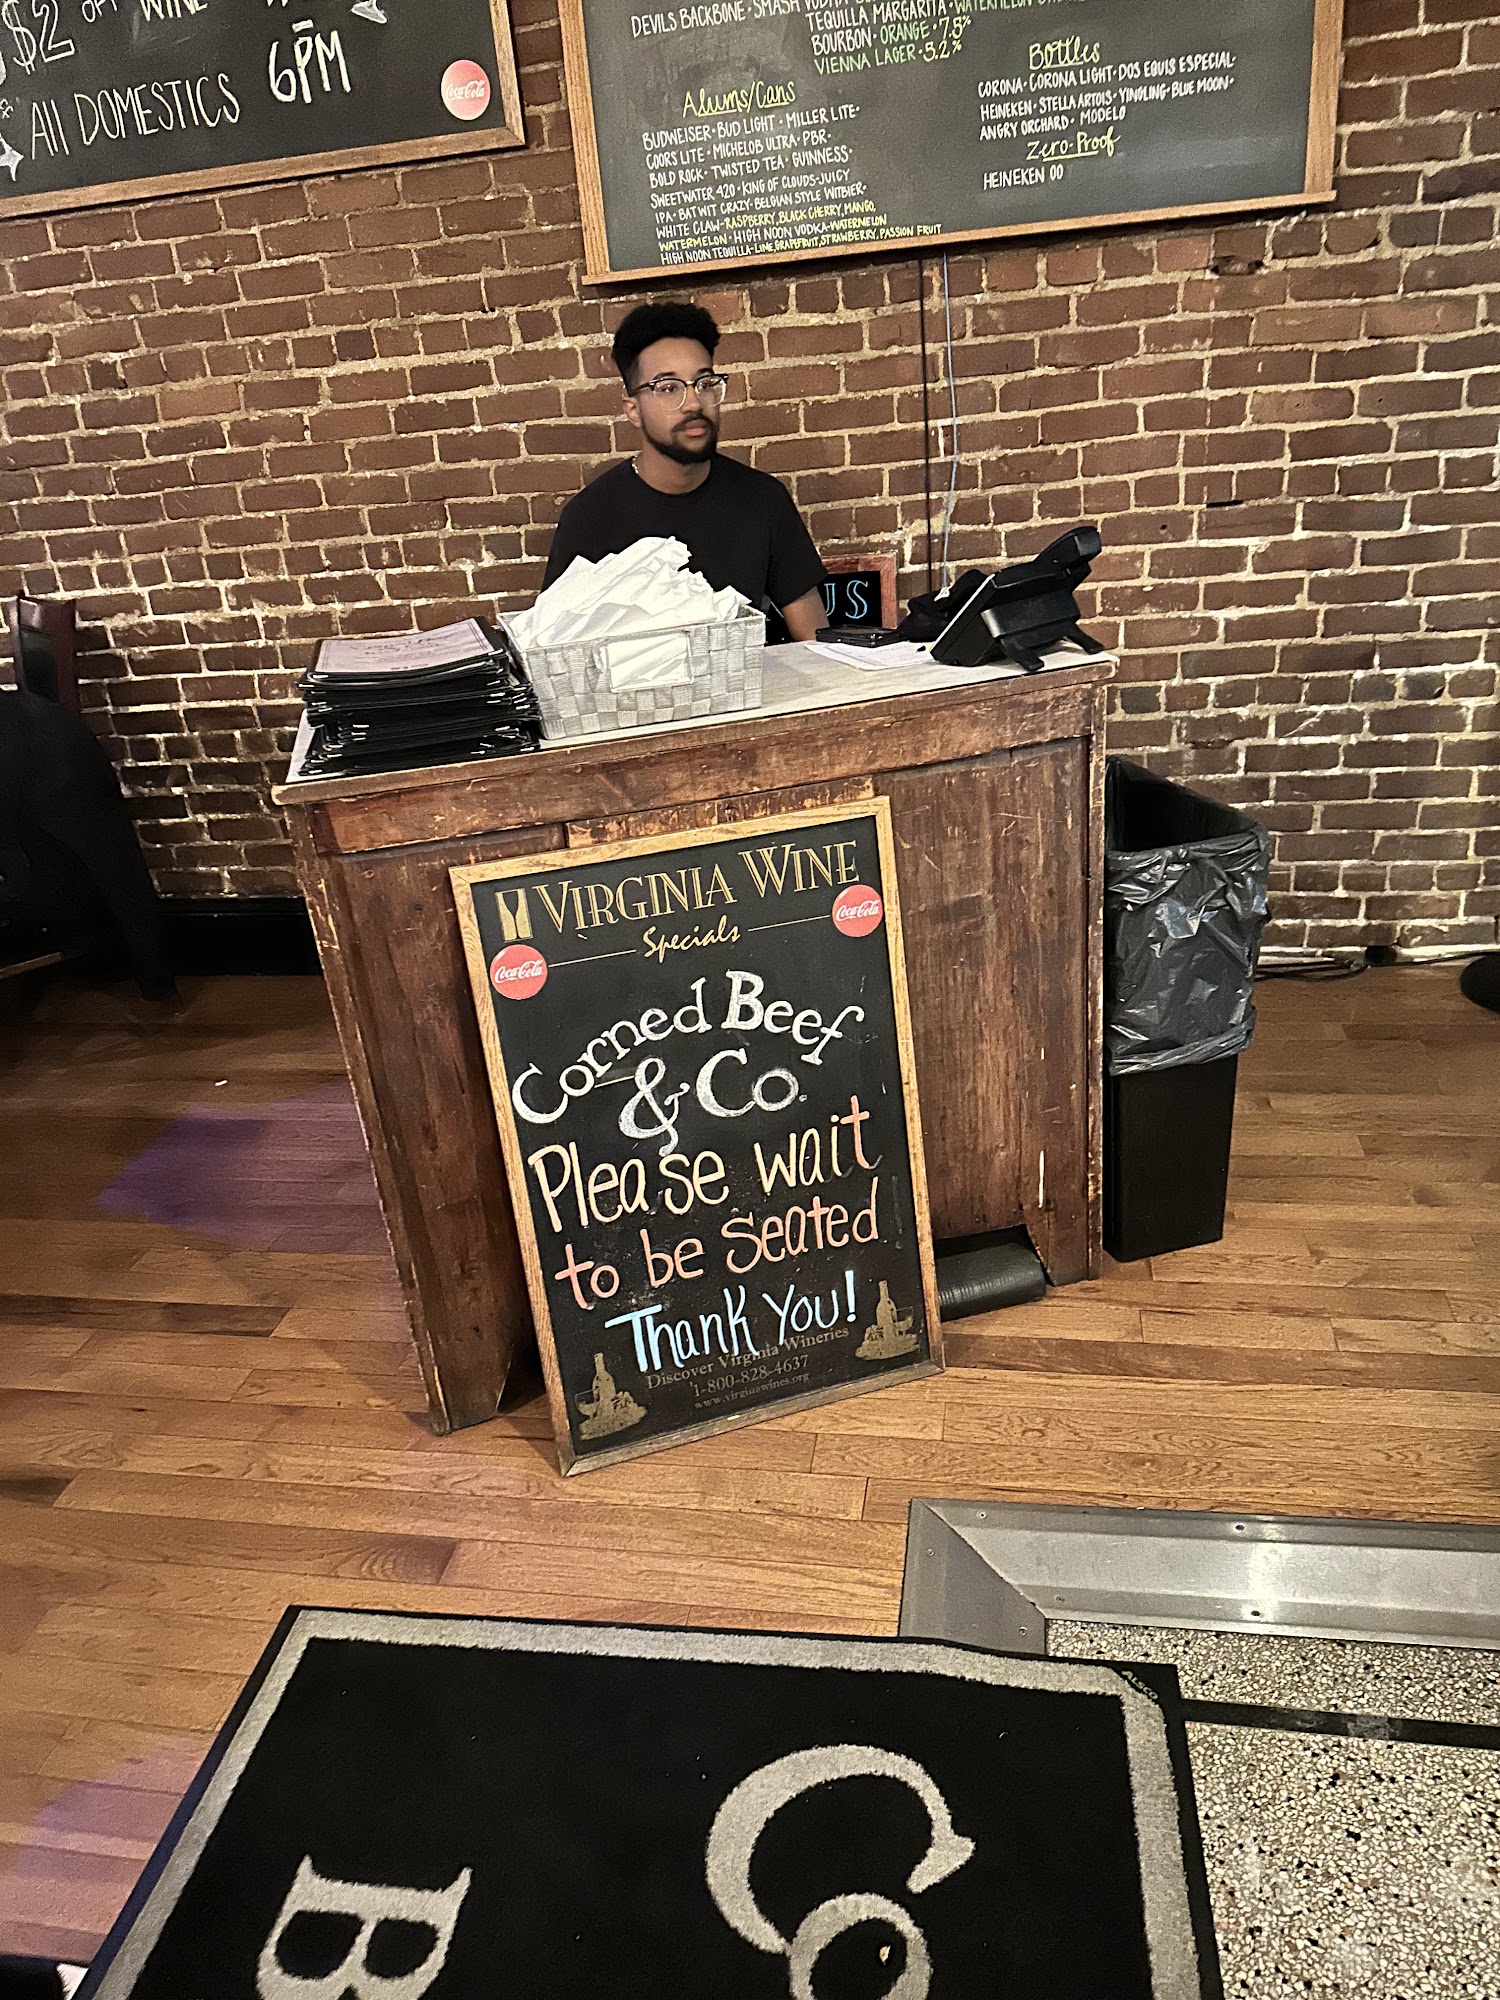 $2 OFF WINE
All DOMESTICS 6PM
Coca-Cola
DEVILS BACKBONE • SMASH VODKA
TEQUILLA MARGARITA • WATERMELON
BOURBON • ORANGE • 7.5%
VIENNA LAGER • 5.2%
Alums/Cans
BUDWEISER • BUD LIGHT • MILLER LITE •
COORS LITE • MICHELOB ULTRA • PBR •
BOLD ROCK • TWISTED TEA • GUINNESS •
SWEETWATER 420 • KING OF CLOUDS-JUICY
IPA • BATWIT CRAZY-BELGIAN STYLE WITBIER •
WHITE CLAW-RASPBERRY, BLACK CHERRY, MANGO,
WATERMELON • HIGH NOON VODKA-WATERMELON
HIGH NOON TEQUILLA-LIME, GRAPEFRUIT, STRAWBERRY, PASSION FRUIT
Bottles
CORONA • CORONA LIGHT • DOS EQUIS ESPECIAL •
HEINEKEN • STELLA ARTOIS • YINGLING • BLUE MOON •
ANGRY ORCHARD • MODELO
Zero-Proof
HEINEKEN 00
US
VIRGINIA WINE
Specials
Coca-Cola
Coca-Cola
Corned Beef
& Co.
Please wait
to be seated
Thank You!
Discover Virginia Wineries
1-800-828-4637
www.virginiawines.org
ALSCO
Co
B